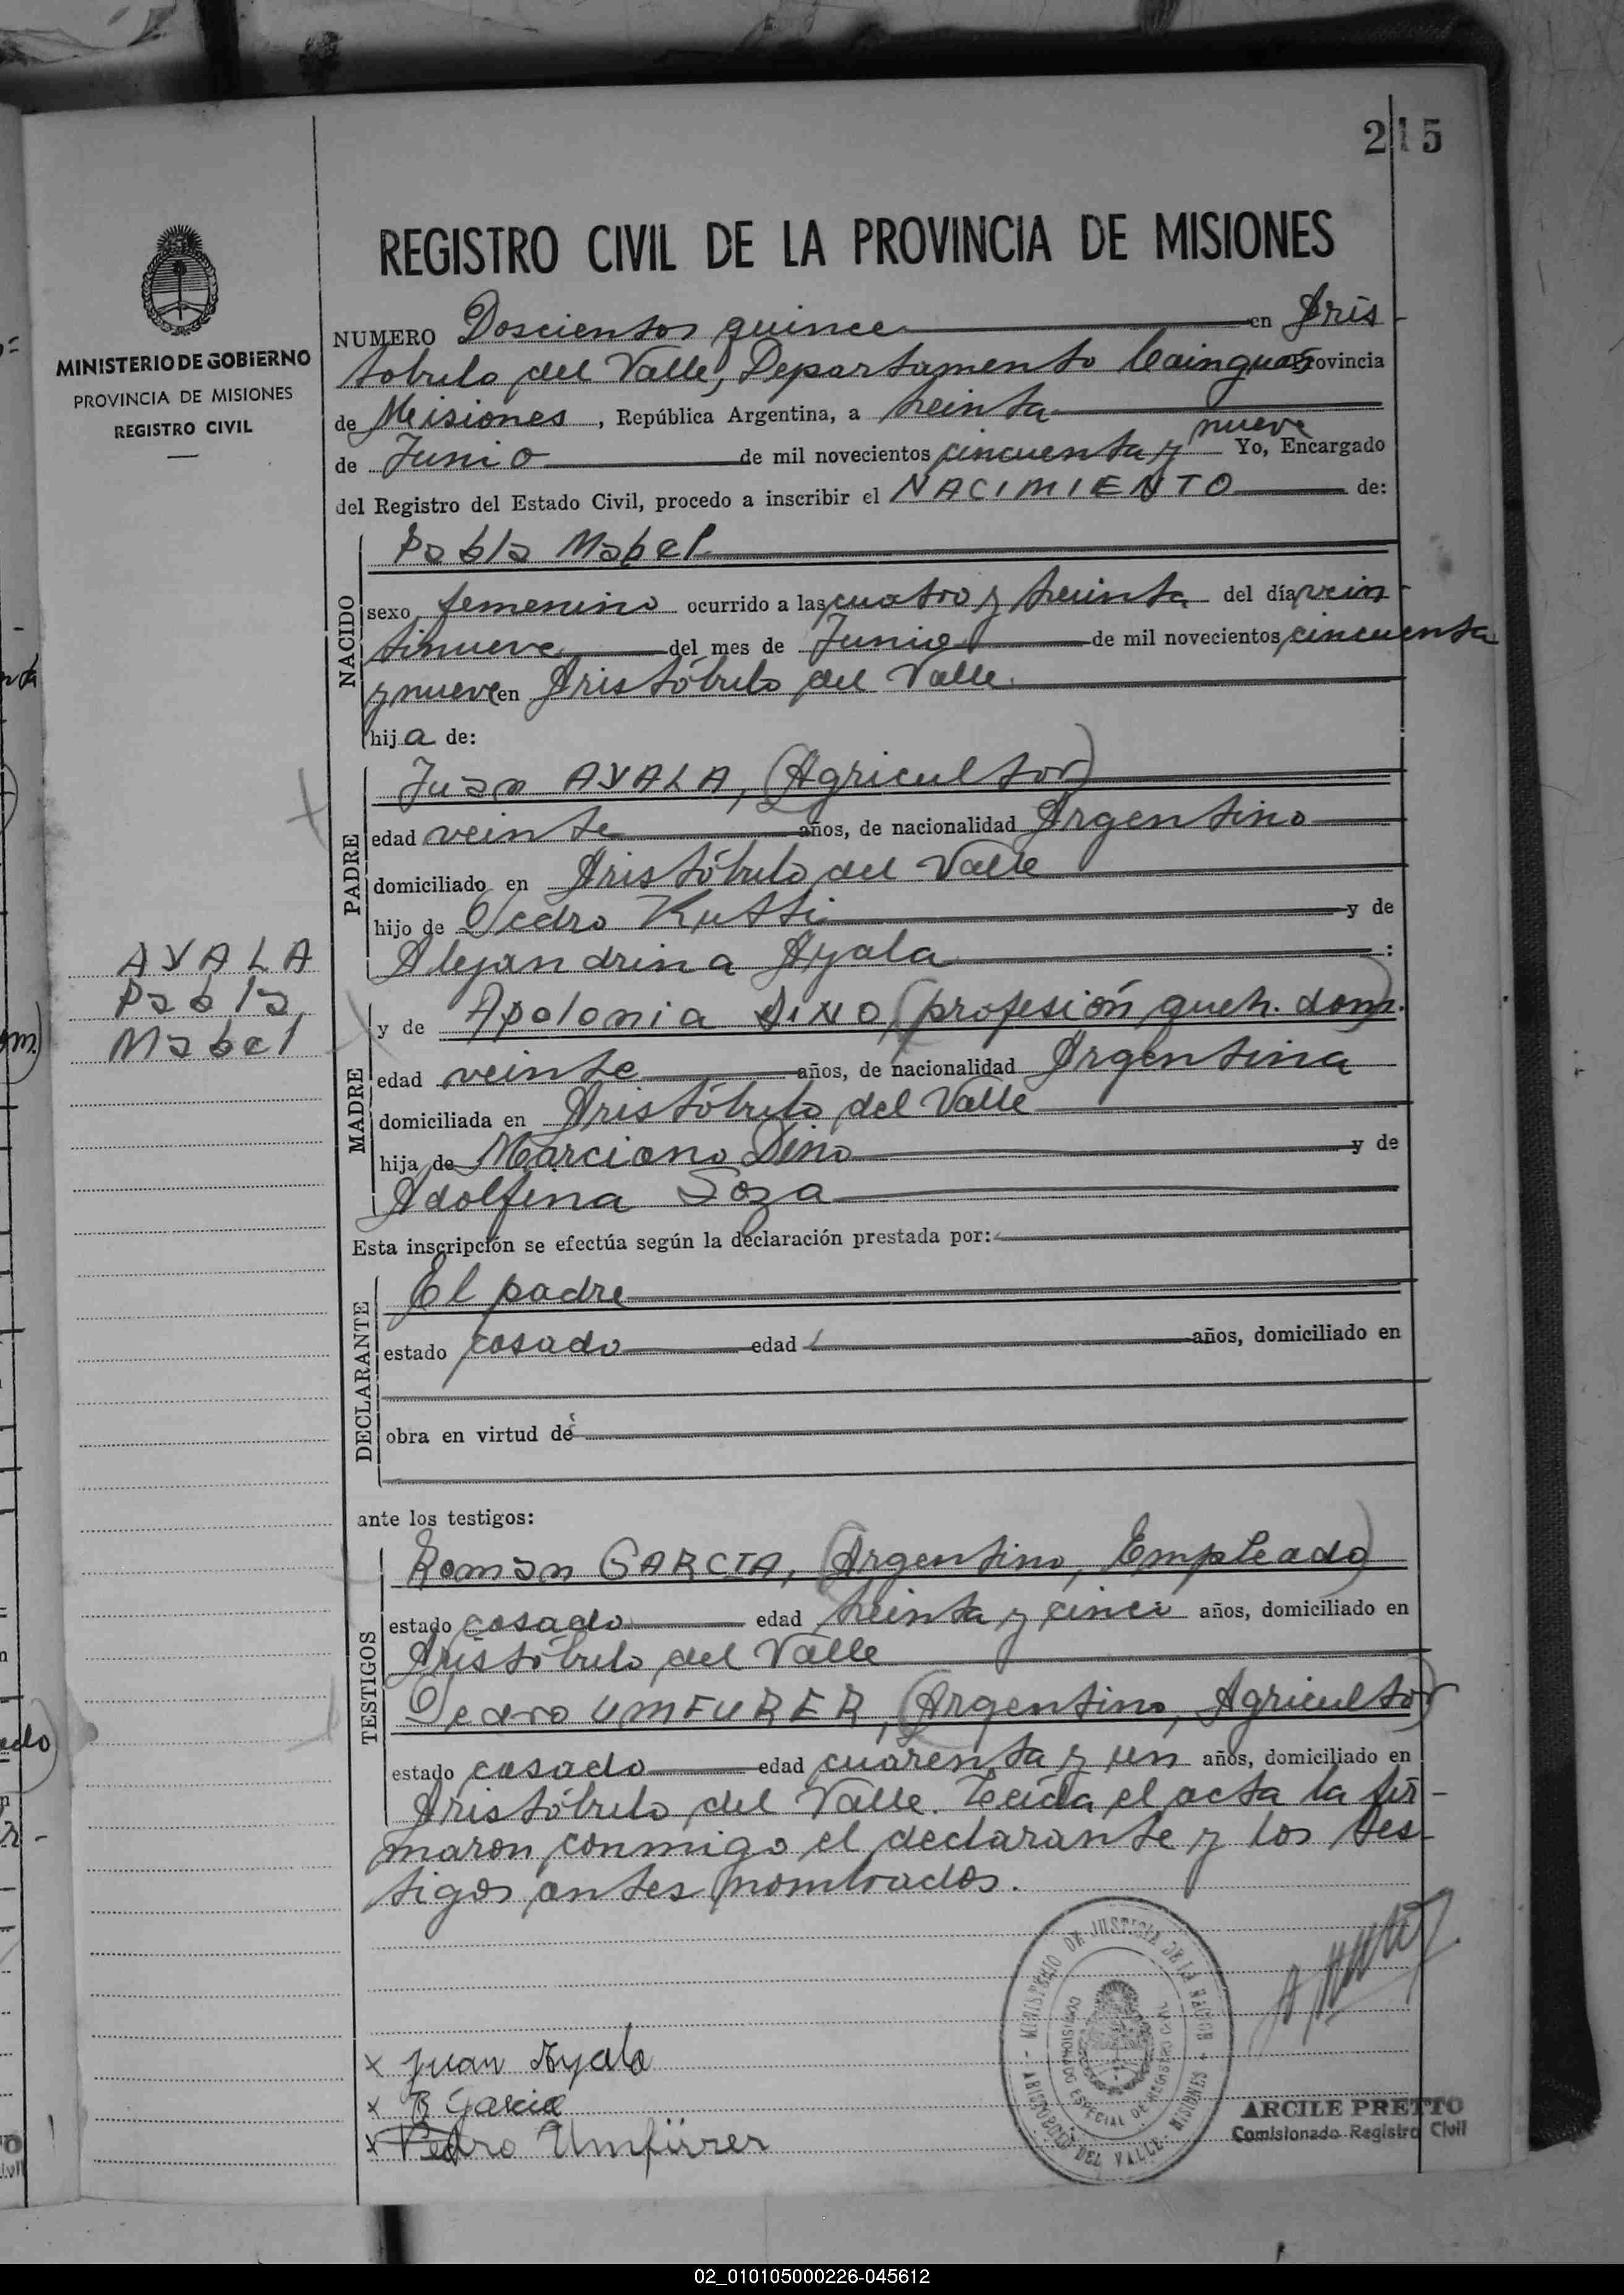 215
REGISTRO CIVIL DE LA PROVINCIA DE MISIONES
MINISTERIO DE GOBIERNO
PROVINCIA DE MISIONES
REGISTRO CIVIL
NUMERO Doscientos quince en Aris
tobulo del Valle, Departamento Cainguas Provincia
de Misiones, República Argentina, a treinta
de Junio de mil novecientos cincuenta y nueve Yo, Encargado
del Registro del Estado Civil, procedo a inscribir el NACIMIENTO de:
NACIDO
Pabla Mabel
sexo femenino ocurrido a las cuatro y treinta del día vein
tinueve del mes de Junio de mil novecientos cincuenta
y nueve en Aristóbulo del Valle
hija de:
PADRE
Juan AYALA, (Agricultor)
edad veinte años, de nacionalidad Argentino
domiciliado en Aristóbulo del Valle
hijo de Pedro Kutti y de
Alejandrina Ayala :
AYALA
Pabla
Mabel
MADRE
y de Apolonia DINO, (profesión queh. dom).
edad veinte años, de nacionalidad Argentina
domiciliada en Aristóbulo del Valle
hija de Marciano Dino y de
Adolfina Soza
Esta inscripción se efectúa según la declaración prestada por:
DECLARANTE
El padre
estado casado edad años, domiciliado en
obra en virtud de
ante los testigos:
TESTIGOS
Roman GARCIA, (Argentino, Empleado)
estado casado edad treinta y cinco años, domiciliado en
Aristóbulo del Valle
Pedro UMFURER, (Argentino, Agricultor)
estado casado edad cuarenta y un años, domiciliado en
Aristóbulo del Valle. Leída el acta la fir-
maron conmigo el declarante y los tes-
tigos antes nombrados.
MINISTERIO DE JUSTICIA DE LA NACION
COMISIONADO ESPECIAL DE REGISTRO CIVIL
ARISTOBULO DEL VALLE - MISIONES
x Juan Ayala
x R Garcia
x Pedro Umfürrer
ARCILE PRETTO
Comisionado Registro Civil
02_010105000226-045612